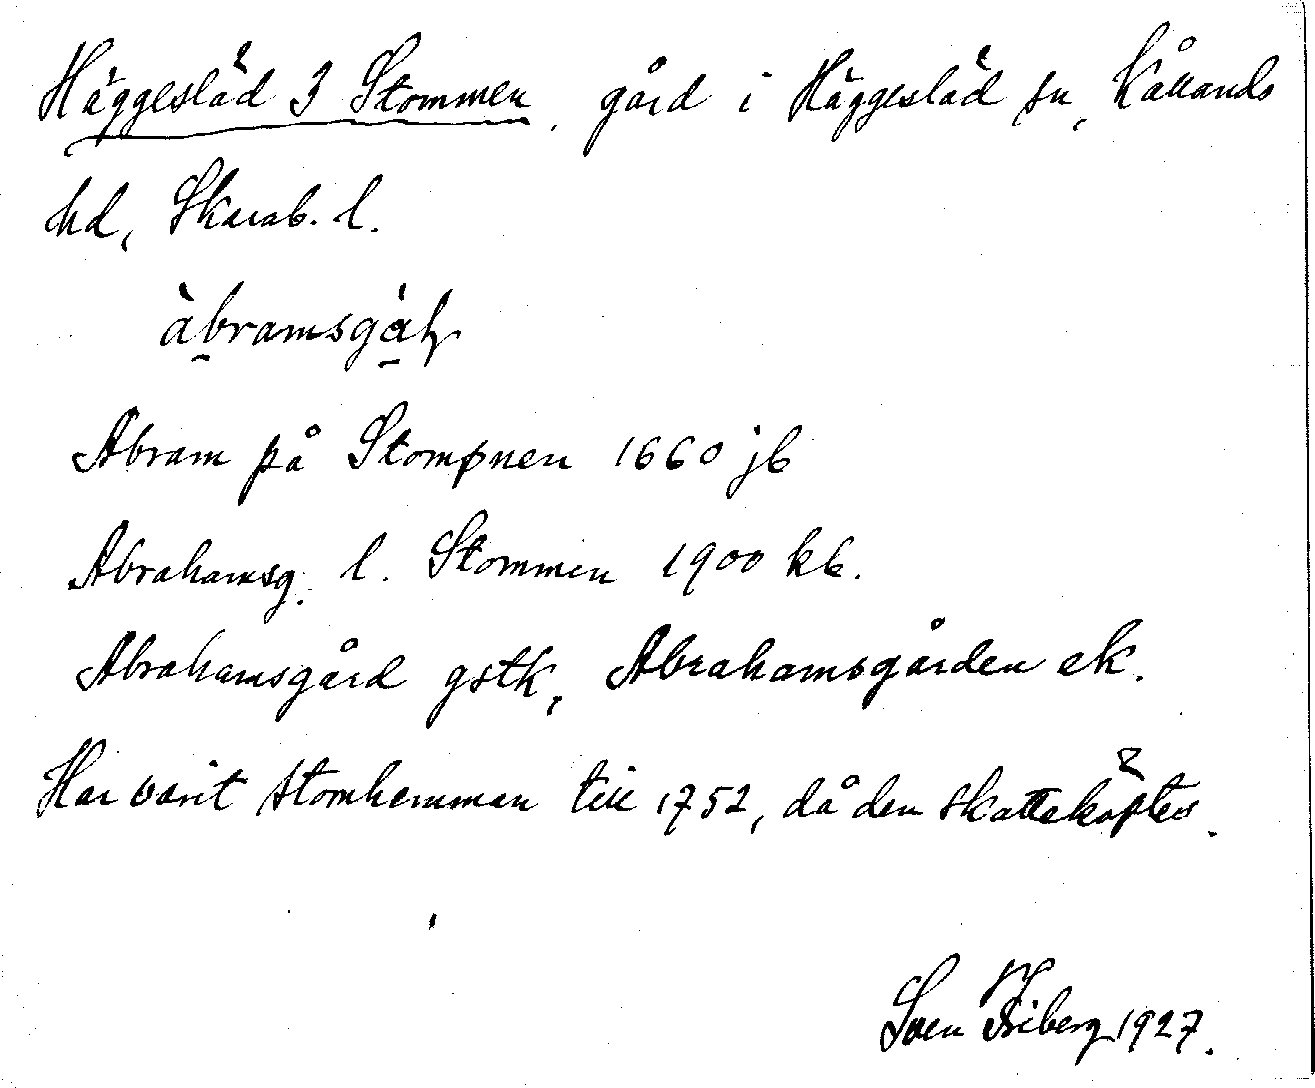 Häggesläd 3 Stommen, gård i Häggesläd sn, Kållands
hd, Skarab. l.
àbramsgàḷ
Abram på Stompnen 1660 jb
Abrahamsg. l. Stommen 1900 kb.
Abrahamsgård gstk, Abrahamsgården ek.
Har varit stomhemman till 1752, då den skatteköptes.
Sven Friberg 1927.